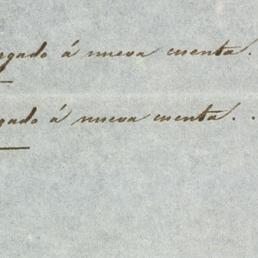 egado á nueva cuenta.
gado á nueva cuenta. .